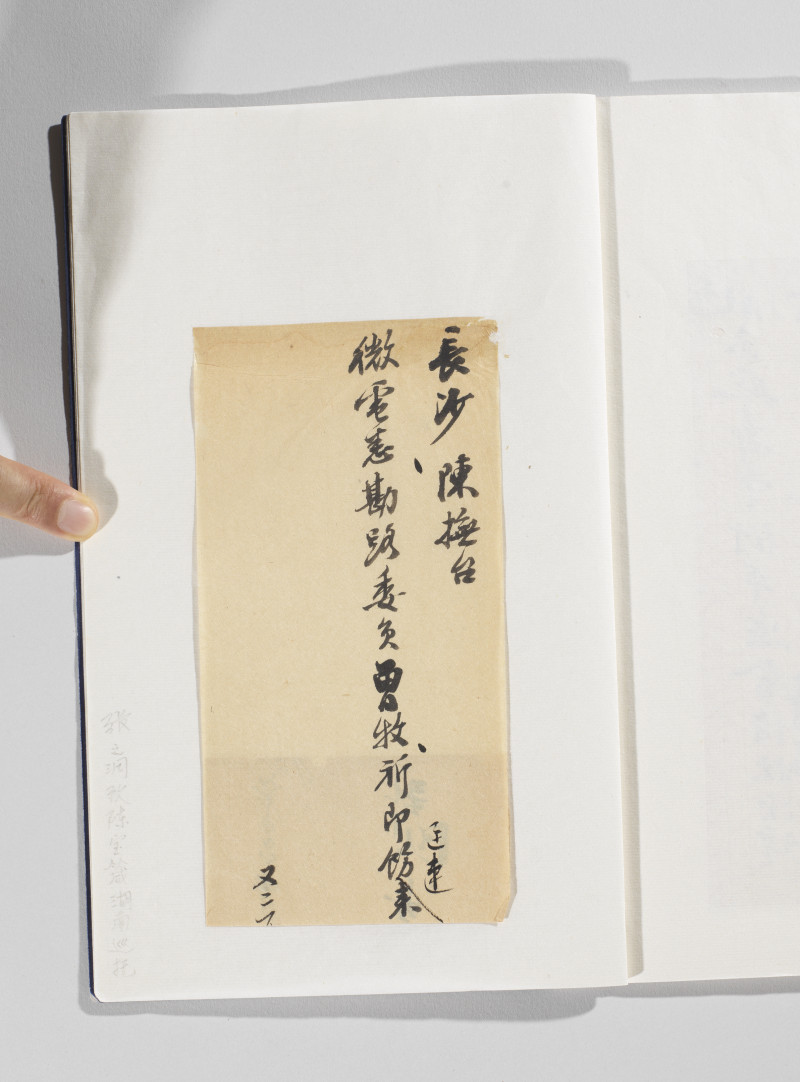 長沙陳撫台
微電悉、勘路委員曾牧、祈即飭来
速
又二
張之洞致陳寶箴湖南巡抚